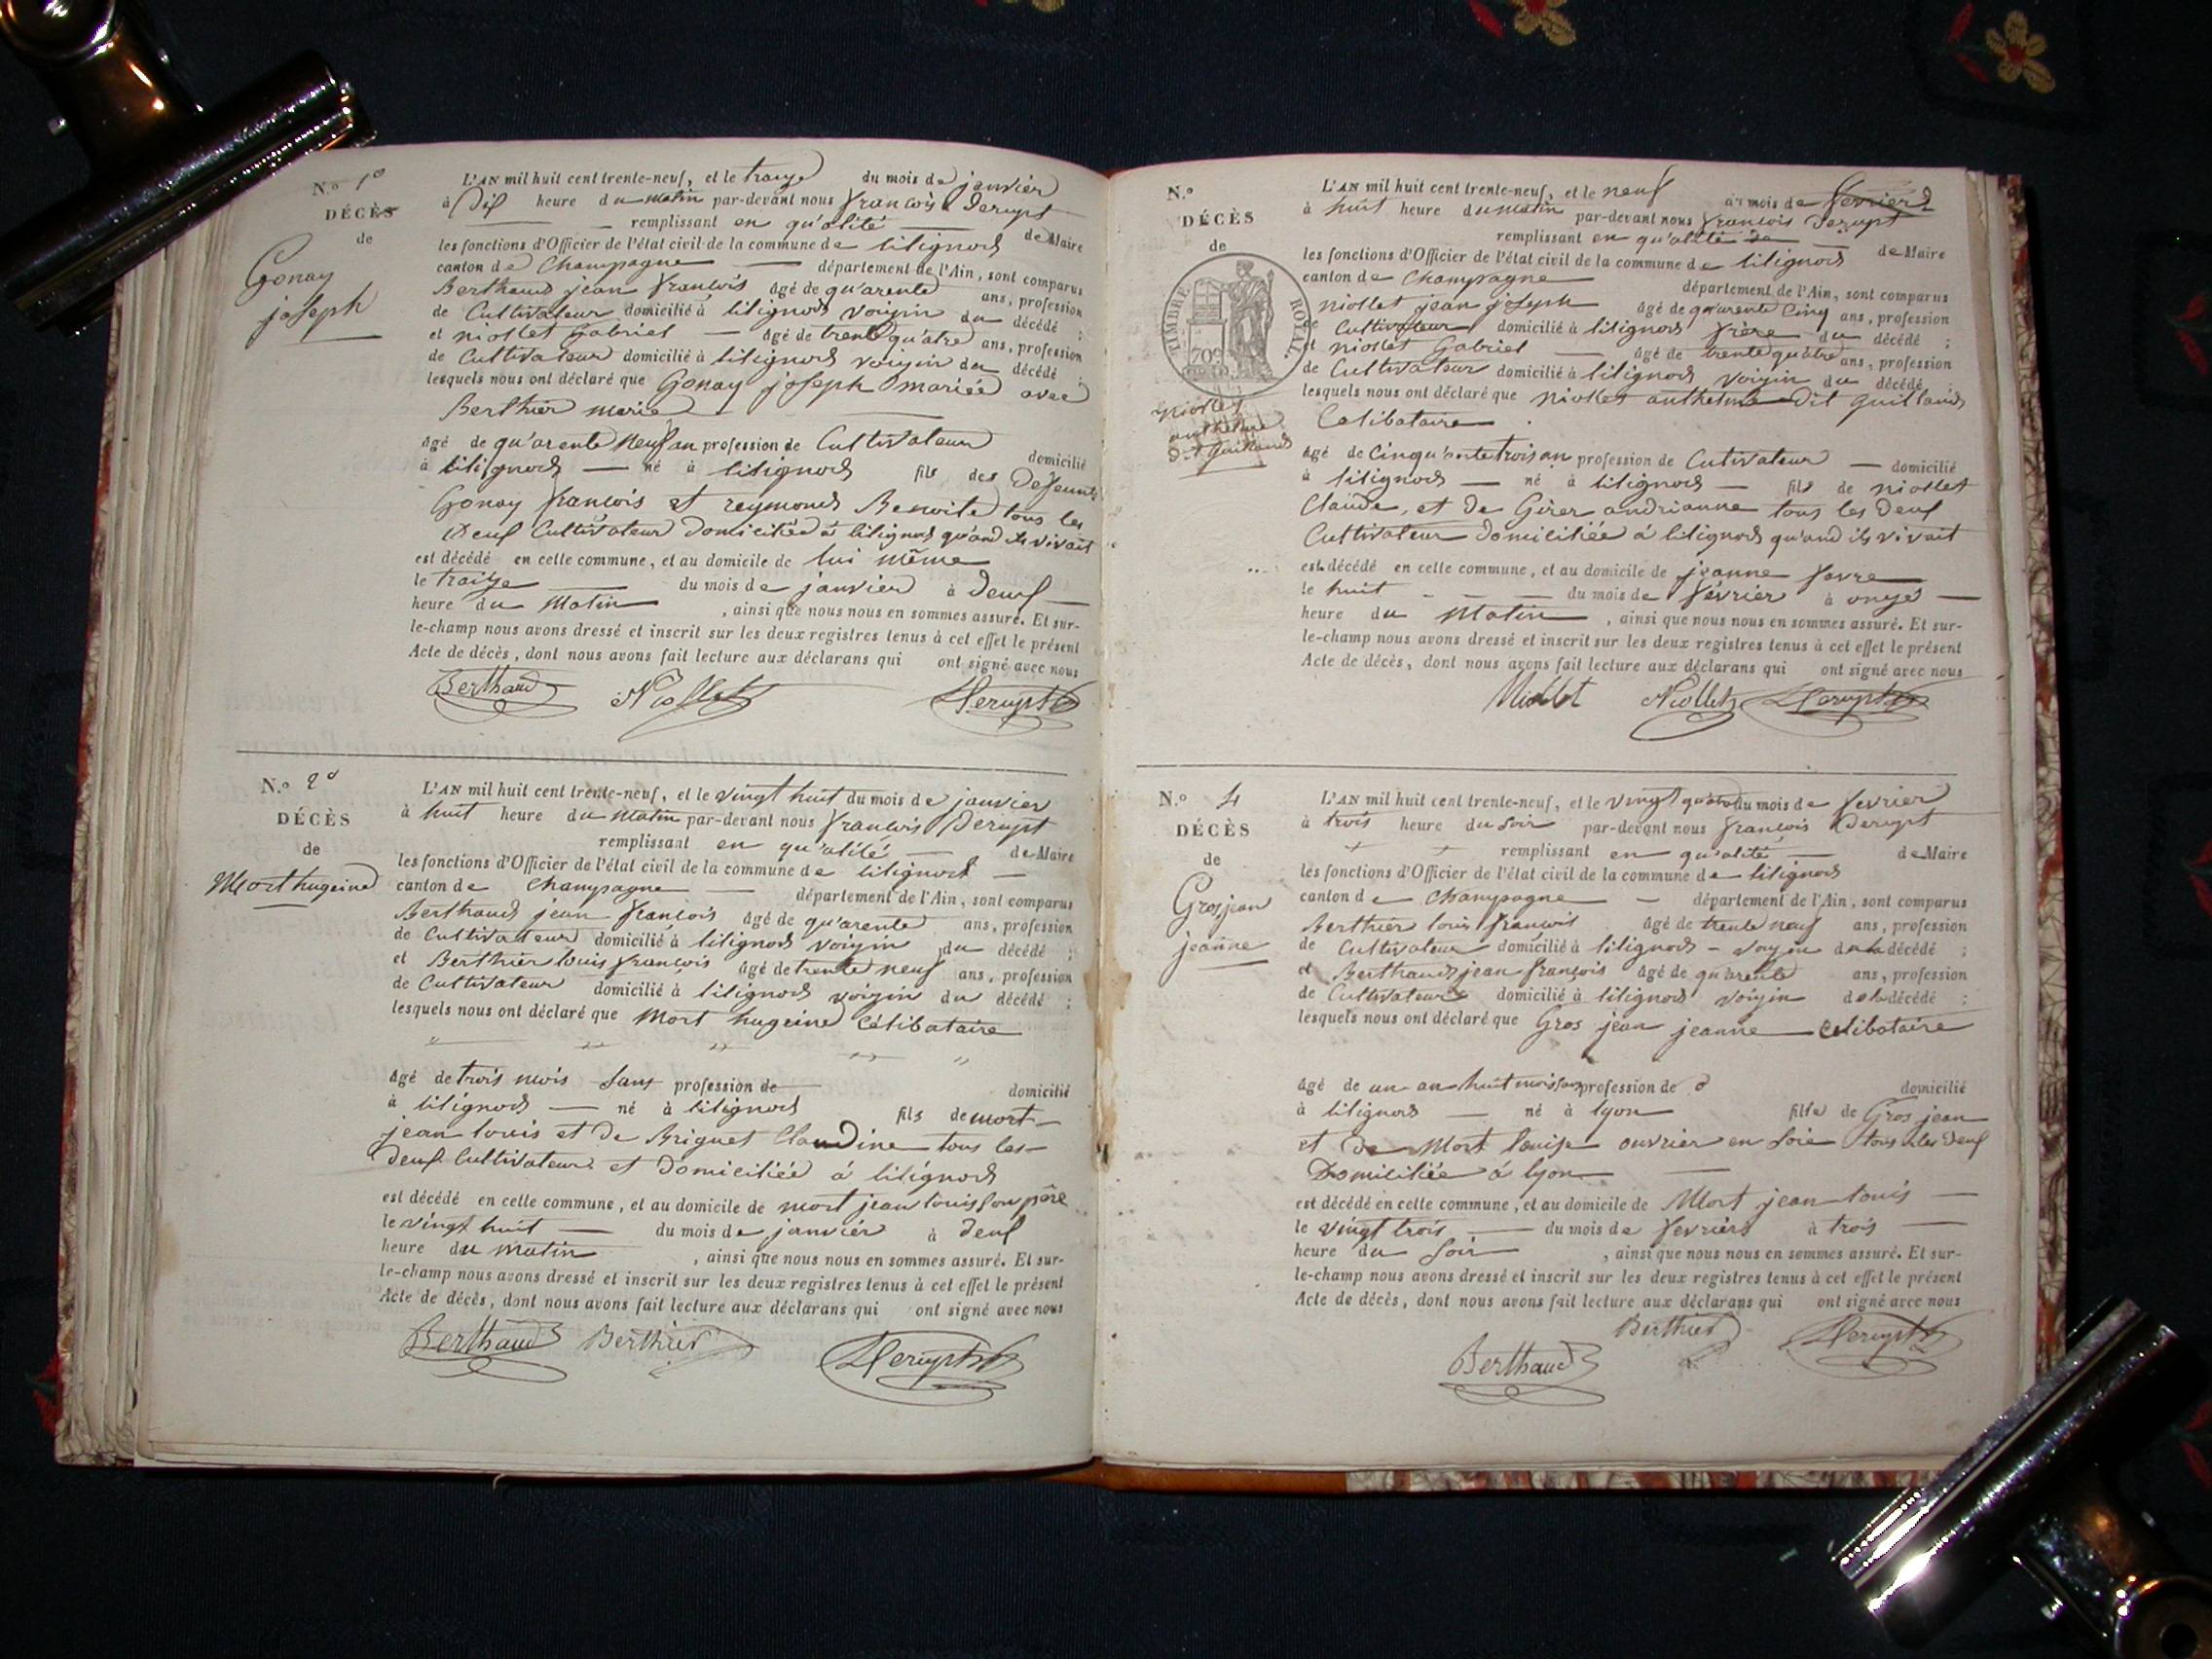 N.o 1o
DÉCÈS
de
Gonay
joseph
L'AN mil huit cent trente-neuf, et le traize du mois de janvier
à Dix heure du matin par-devant nous françois Derupt
remplissant en qu'alité de Maire
les fonctions d'Officier de l'état civil de la commune de lilignod
canton de Champagne département de l'Ain, sont comparus
Berthaud jean françois âgé de qu'arente ans, profession
de Cultivateur domicilié à lilignod voizin du décédé ;
et niollet Gabriel âgé de trente qu'atre ans, profession
de Cultivateur domicilié à lilignod voizin du décédé ;
lesquels nous ont déclaré que Gonay joseph mariée avec
Berthier marie
âgé de qu'arente neuf an profession de Cultivateur domicilié
à lilignod né à lilignod fils des Defeunt
Gonay françois et reymond Benoite tous les
Deux Cultivateur Domiciliée à lilignod qu'and ils vivait
est décédé en cette commune, et au domicile de lui même
le traize du mois de janvier à deux
heure du Matin , ainsi que nous nous en sommes assuré. Et sur-
le-champ nous avons dressé et inscrit sur les deux registres tenus à cet effet le présent
Acte de décès, dont nous avons fait lecture aux déclarans qui ont signé avec nous
Berthaud Niollet Derupt
N.o 2o
DÉCÈS
de
Mort hugeine
L'AN mil huit cent trente-neuf, et le vingt huit du mois de janvier
à huit heure du matin par-devant nous françois Derupt
remplissant en qu'alité de Maire
les fonctions d'Officier de l'état civil de la commune de lilignod
canton de Champagne département de l'Ain, sont comparus
Berthaud jean françois âgé de qu'arente ans, profession
de Cultivateur domicilié à lilignod voizin du décédé ;
et Berthier louis françois âgé de trente neuf ans, profession
de Cultivateur domicilié à lilignod voizin du décédé ;
lesquels nous ont déclaré que Mort hugeine Célibataire
âgé de trois mois Sans profession de domicilié
à lilignod né à lilignod fils de mort
jean louis et de Briguet Claudine tous les
deux Cultivateur et domiciliée à lilignod
est décédé en cette commune, et au domicile de mort jean louis son père
le vingt huit du mois de janvier à deux
heure du matin , ainsi que nous nous en sommes assuré. Et sur-
le-champ nous avons dressé et inscrit sur les deux registres tenus à cet effet le présent
Acte de décès, dont nous avons fait lecture aux déclarans qui ont signé avec nous
Berthaud Berthier Derupt
N.o
DÉCÈS
de
TIMBRE ROYAL.
709
niollet
anthelme
dit Guilland
L'AN mil huit cent trente-neuf, et le neuf du mois de fevrier
à huit heure du matin par-devant nous françois Derupt
remplissant en qu'alité de Maire
les fonctions d'Officier de l'état civil de la commune de lilignod
canton de Champagne département de l'Ain, sont comparus
niollet jean joseph âgé de qu'arente Cinq ans, profession
de Cultivateur domicilié à lilignod frère du décédé ;
et niollet Gabriel âgé de trente qu'atre ans, profession
de Cultivateur domicilié à lilignod voizin du décédé ;
lesquels nous ont déclaré que niollet anthelme dit Guilland
Celibataire
âgé de Cinqu'ante trois an profession de Cutivateur domicilié
à lilignod né à lilignod fils de niollet
Claude, et de Girer andrianne tous les deux
Cultivateur Domiciliée à lilignod qu'and ils vivait
est décédé en cette commune, et au domicile de jeanne favre
le huit du mois de février à onze
heure du Matin , ainsi que nous nous en sommes assuré. Et sur-
le-champ nous avons dressé et inscrit sur les deux registres tenus à cet effet le présent
Acte de décès, dont nous avons fait lecture aux déclarans qui ont signé avec nous
Niollet Niollet Derupt
N.o 4
DÉCÈS
de
Gros jean
jeanne
L'AN mil huit cent trente-neuf, et le vingt quatre du mois de fevrier
à trois heure du soir par-devant nous françois Derupt
remplissant en qu'alité de Maire
les fonctions d'Officier de l'état civil de la commune de lilignod
canton de Champagne département de l'Ain, sont comparus
Berthier louis françois âgé de trente neuf ans, profession
de Cultivateur domicilié à lilignod voizin de la décédé ;
et Berthaud jean françois âgé de qu'arente ans, profession
de Cultivateur domicilié à lilignod voizin de la décédé ;
lesquels nous ont déclaré que Gros jean jeanne celibataire
âgé de un an huit mois sans profession de domicilié
à lilignod né à lyon fille de Gros jean
et de Mort louise ouvrier en soie tous les deux
Domiciliée à lyon
est décédé en cette commune, et au domicile de Mort jean louis
le vingt trois du mois de fevrier à trois
heure du Soir , ainsi que nous nous en sommes assuré. Et sur-
le-champ nous avons dressé et inscrit sur les deux registres tenus à cet effet le présent
Acte de décès, dont nous avons fait lecture aux déclarans qui ont signé avec nous
Berthaud Berthier Derupt